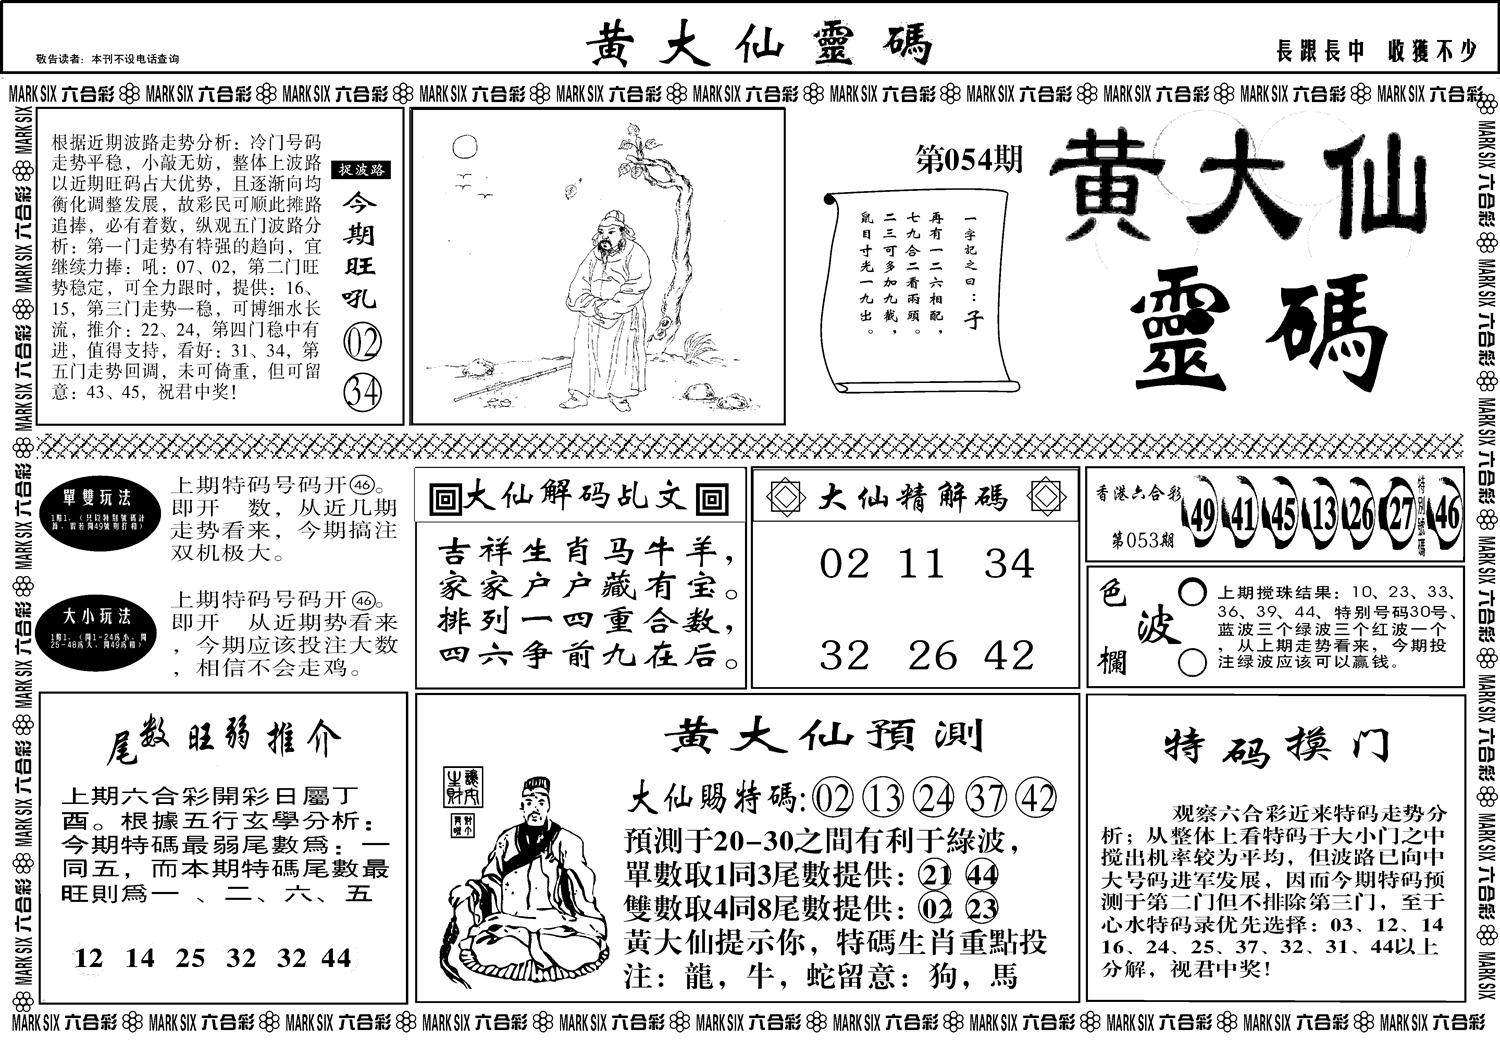 敬告读者：本刊不设电话查询
黄大仙靈碼
長跟長中 收獲不少
MARK SIX 六合彩 MARK SIX 六合彩 MARK SIX 六合彩 MARK SIX 六合彩 MARK SIX 六合彩 MARK SIX 六合彩 MARK SIX 六合彩 MARK SIX 六合彩 MARK SIX 六合彩 MARK SIX 六合彩 MARK SIX 六合彩
根据近期波路走势分析：冷门号码
走势平稳，小敲无妨，整体上波路
以近期旺码占大优势，且逐渐向均
衡化调整发展，故彩民可顺此摊路
追捧，必有着数，纵观五门波路分
析：第一门走势有特强的趋向，宜
继续力捧：吼：07、02，第二门旺
势稳定，可全力跟时，提供：16、
15，第三门走势一稳，可博细水长
流，推介：22、24，第四门稳中有
进，值得支持，看好：31、34，第
五门走势回调，未可倚重，但可留
意：43、45，祝君中奖！
捉波路
今期旺吼
02
34
第054期
一字記之曰：子
再有一二六相配，
七九合二看兩頭。
二三可多加九截，
鼠目寸光一九出。
黄大仙
靈碼
單雙玩法
上期特码号码开46。
即开 数，从近几期
走势看来，今期搞注
双机极大。
大小玩法
1賠1，（開1-24爲小，開
25-48爲大，開49爲和）
上期特码号码开46。
即开 从近期势看来
，今期应该投注大数
，相信不会走鸡。
大仙解码乩文
吉祥生肖马牛羊，
家家户户藏有宝。
排列一四重合数，
四六争前九在后。
大仙精解碼
02 11 34
32 26 42
香港六合彩
第053期
49 41 45 13 26 27 特別號碼 46
色波欄
上期搅珠结果：10、23、33、
36、39、44、特别号码30号、
蓝波三个绿波三个红波一个
，从上期走势看来，今期投
注绿波应该可以赢钱。
尾数旺弱推介
上期六合彩開彩日屬丁
酉。根據五行玄學分析：
今期特碼最弱尾數爲：一
同五，而本期特碼尾數最
旺則爲一 、二、六、五
12 14 25 32 32 44
黄大仙預測
大仙賜特碼：02 13 24 37 42
預測于20-30之間有利于綠波，
單數取1同3尾數提供：21 44
雙數取4同8尾數提供：02 23
黃大仙提示你，特碼生肖重點投
注：龍，牛，蛇留意：狗，馬
特码摸门
观察六合彩近来特码走势分
析；从整体上看特码于大小门之中
搅出机率较为平均，但波路已向中
大号码进军发展，因而今期特码预
测于第二门但不排除第三门，至于
心水特码录优先选择：03、12、14
16、24、25、37、32、31、44以上
分解，祝君中奖！
MARK SIX 六合彩 MARK SIX 六合彩 MARK SIX 六合彩 MARK SIX 六合彩 MARK SIX 六合彩 MARK SIX 六合彩 MARK SIX 六合彩 MARK SIX 六合彩 MARK SIX 六合彩 MARK SIX 六合彩 MARK SIX 六合彩